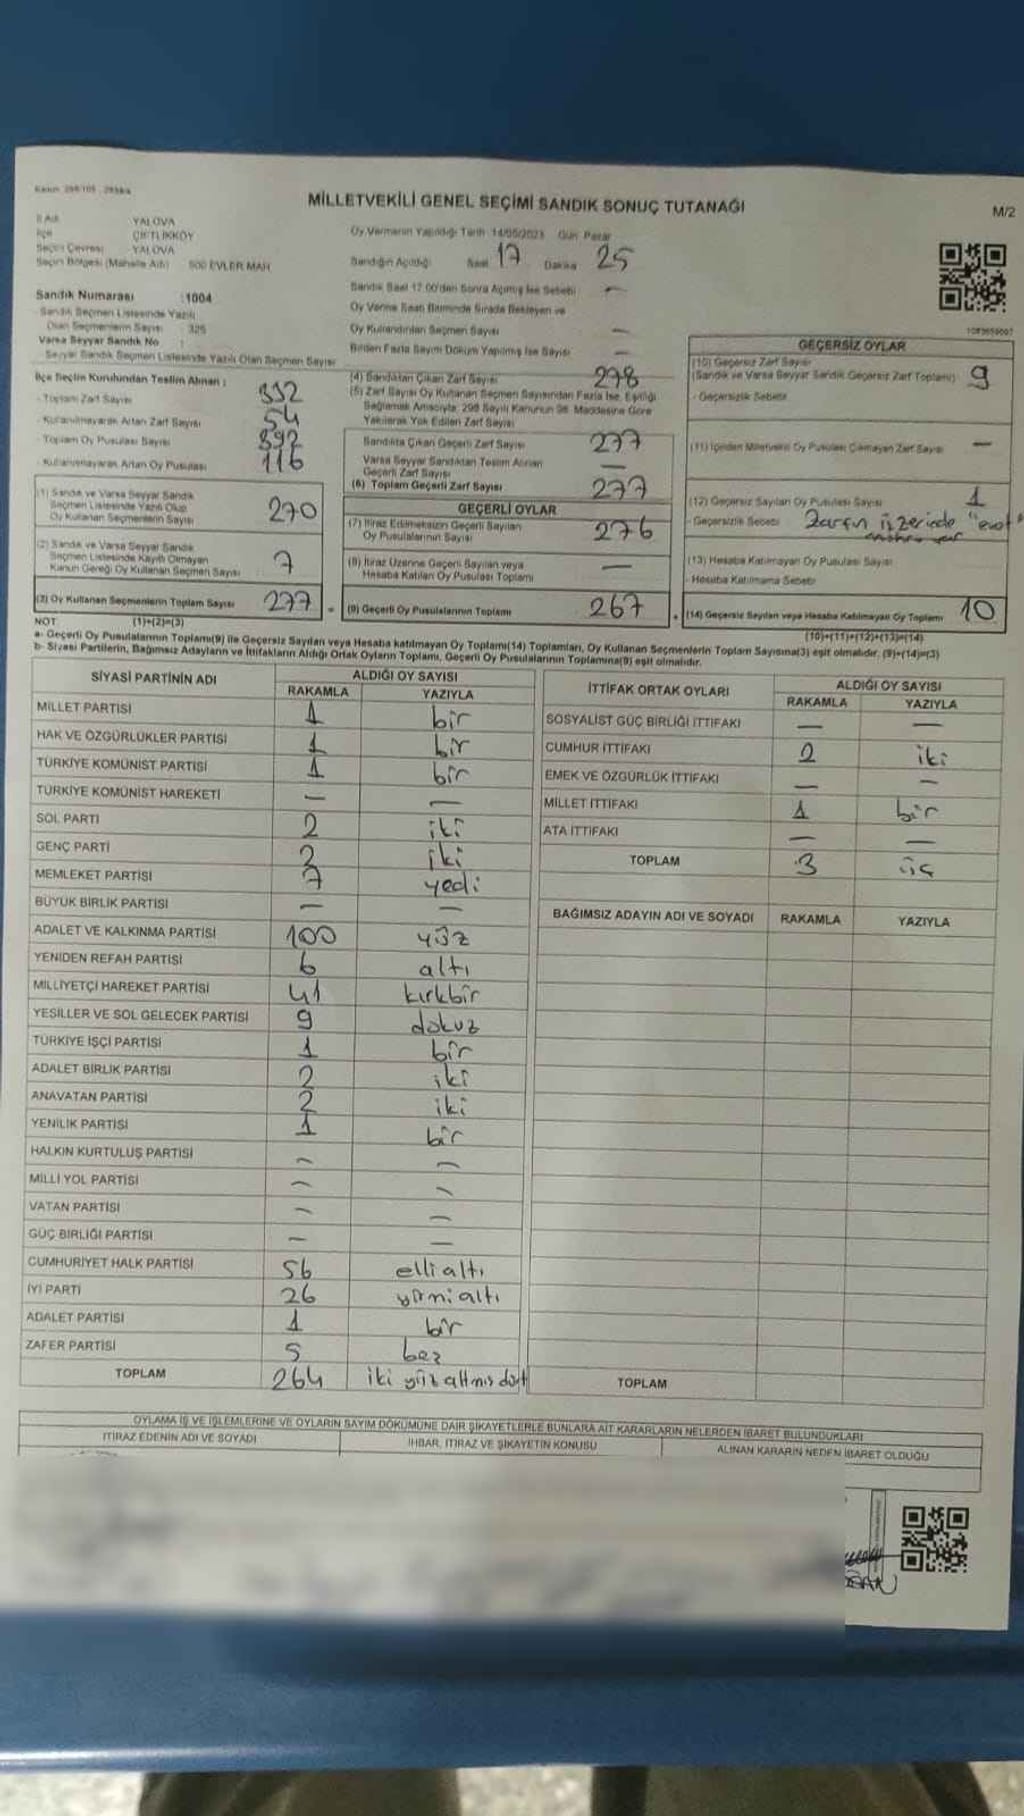 MİLLETVEKİLİ GENEL SEÇİMİ SANDIK SONUÇ TUTANAĞI
M/2
İl Adı YALOVA
İlçe ÇİFTLİKKÖY
Seçim Çevresi YALOVA
Seçim Bölgesi (Mahalle Adı) 500 EVLER MAH
Sandık Numarası :1004
Sandık Seçmen Listesinde Yazılı
Olan Seçmenlerin Sayısı : 326
Varsa Seyyar Sandık No :
Seyyar Sandık Seçmen Listesinde Yazılı Olan Seçmen Sayısı
Oy Vermenin Yapıldığı Tarih 14/05/2023 Gün Pazar
Sandığın Açıldığı Saat 17 Dakika 25
Sandık Saat 17.00'den Sonra Açılmış İse Sebebi —
Oy Verme Saati Bitiminde Sırada Bekleyen ve
Oy Kullandırılan Seçmen Sayısı —
Birden Fazla Sayım Döküm Yapılmış İse Sayısı —
İlçe Seçim Kurulundan Teslim Alınan :
- Toplam Zarf Sayısı 332
- Kullanılmayarak Artan Zarf Sayısı 54
- Toplam Oy Pusulası Sayısı 392
- Kullanılmayarak Artan Oy Pusulası 116
(1) Sandık ve Varsa Seyyar Sandık
Seçmen Listesinde Yazılı Olup
Oy Kullanan Seçmenlerin Sayısı 270
(2) Sandık ve Varsa Seyyar Sandık
Seçmen Listesinde Kayıtlı Olmayan
Kanun Gereği Oy Kullanan Seçmen Sayısı 7
(3) Oy Kullanan Seçmenlerin Toplam Sayısı 277
(4) Sandıktan Çıkan Zarf Sayısı 278
(5) Zarf Sayısı Oy Kullanan Seçmen Sayısından Fazla İse, Eşitliği
Sağlamak Amacıyla, 298 Sayılı Kanunun 98. Maddesine Göre
Yakılarak Yok Edilen Zarf Sayısı
Sandıkta Çıkan Geçerli Zarf Sayısı 277
Varsa Seyyar Sandıktan Teslim Alınan
Geçerli Zarf Sayısı —
(6) Toplam Geçerli Zarf Sayısı 277
GEÇERLİ OYLAR
(7) İtiraz Edilmeksizin Geçerli Sayılan
Oy Pusulalarının Sayısı 276
(8) İtiraz Üzerine Geçerli Sayılan veya
Hesaba Katılan Oy Pusulası Toplamı —
(9) Geçerli Oy Pusulalarının Toplamı 267
GEÇERSİZ OYLAR
(10) Geçersiz Zarf Sayısı
(Sandık ve Varsa Seyyar Sandık Geçersiz Zarf Toplamı) 9
- Geçersizlik Sebebi
(11) İçinden Milletvekili Oy Pusulası Çıkmayan Zarf Sayısı —
(12) Geçersiz Sayılan Oy Pusulası Sayısı 1
- Geçersizlik Sebebi Zarfın üzerinde "evet"
(13) Hesaba Katılmayan Oy Pusulası Sayısı
- Hesaba Katılmama Sebebi
(14) Geçersiz Sayılan veya Hesaba Katılmayan Oy Toplamı 10
NOT (1)+(2)=(3)
(10)+(11)+(12)+(13)=(14)
a- Geçerli Oy Pusulalarının Toplamı(9) ile Geçersiz Sayılan veya Hesaba katılmayan Oy Toplamı(14) Toplamları, Oy Kullanan Seçmenlerin Toplam Sayısına(3) eşit olmalıdır. (9)+(14)=(3)
b- Siyasi Partilerin, Bağımsız Adayların ve İttifakların Aldığı Ortak Oyların Toplamı, Geçerli Oy Pusulalarının Toplamına(9) eşit olmalıdır.
SİYASİ PARTİNİN ADI ALDIĞI OY SAYISI
RAKAMLA YAZIYLA
MİLLET PARTİSİ 1 bir
HAK VE ÖZGÜRLÜKLER PARTİSİ 1 bir
TÜRKİYE KOMÜNİST PARTİSİ 1 bir
TÜRKİYE KOMÜNİST HAREKETİ — —
SOL PARTİ 2 iki
GENÇ PARTİ 2 iki
MEMLEKET PARTİSİ 7 yedi
BÜYÜK BİRLİK PARTİSİ — —
ADALET VE KALKINMA PARTİSİ 100 yüz
YENİDEN REFAH PARTİSİ 6 altı
MİLLİYETÇİ HAREKET PARTİSİ 41 kırkbir
YEŞİLLER VE SOL GELECEK PARTİSİ 9 dokuz
TÜRKİYE İŞÇİ PARTİSİ 1 bir
ADALET BİRLİK PARTİSİ 2 iki
ANAVATAN PARTİSİ 2 iki
YENİLİK PARTİSİ 1 bir
HALKIN KURTULUŞ PARTİSİ — —
MİLLİ YOL PARTİSİ — —
VATAN PARTİSİ — —
GÜÇ BİRLİĞİ PARTİSİ — —
CUMHURİYET HALK PARTİSİ 56 ellialtı
İYİ PARTİ 26 yirmialtı
ADALET PARTİSİ 1 bir
ZAFER PARTİSİ 5 beş
TOPLAM 264 iki yüz altmış dört
İTTİFAK ORTAK OYLARI ALDIĞI OY SAYISI
RAKAMLA YAZIYLA
SOSYALİST GÜÇ BİRLİĞİ İTTİFAKI — —
CUMHUR İTTİFAKI 2 iki
EMEK VE ÖZGÜRLÜK İTTİFAKI — —
MİLLET İTTİFAKI 1 bir
ATA İTTİFAKI — —
TOPLAM 3 üç
BAĞIMSIZ ADAYIN ADI VE SOYADI RAKAMLA YAZIYLA
TOPLAM
OYLAMA İŞ VE İŞLEMLERİNE VE OYLARIN SAYIM DÖKÜMÜNE DAİR ŞİKAYETLERLE BUNLARA AİT KARARLARIN NELERDEN İBARET BULUNDUKLARI
İTİRAZ EDENİN ADI VE SOYADI İHBAR, İTİRAZ VE ŞİKAYETİN KONUSU ALINAN KARARIN NEDEN İBARET OLDUĞU